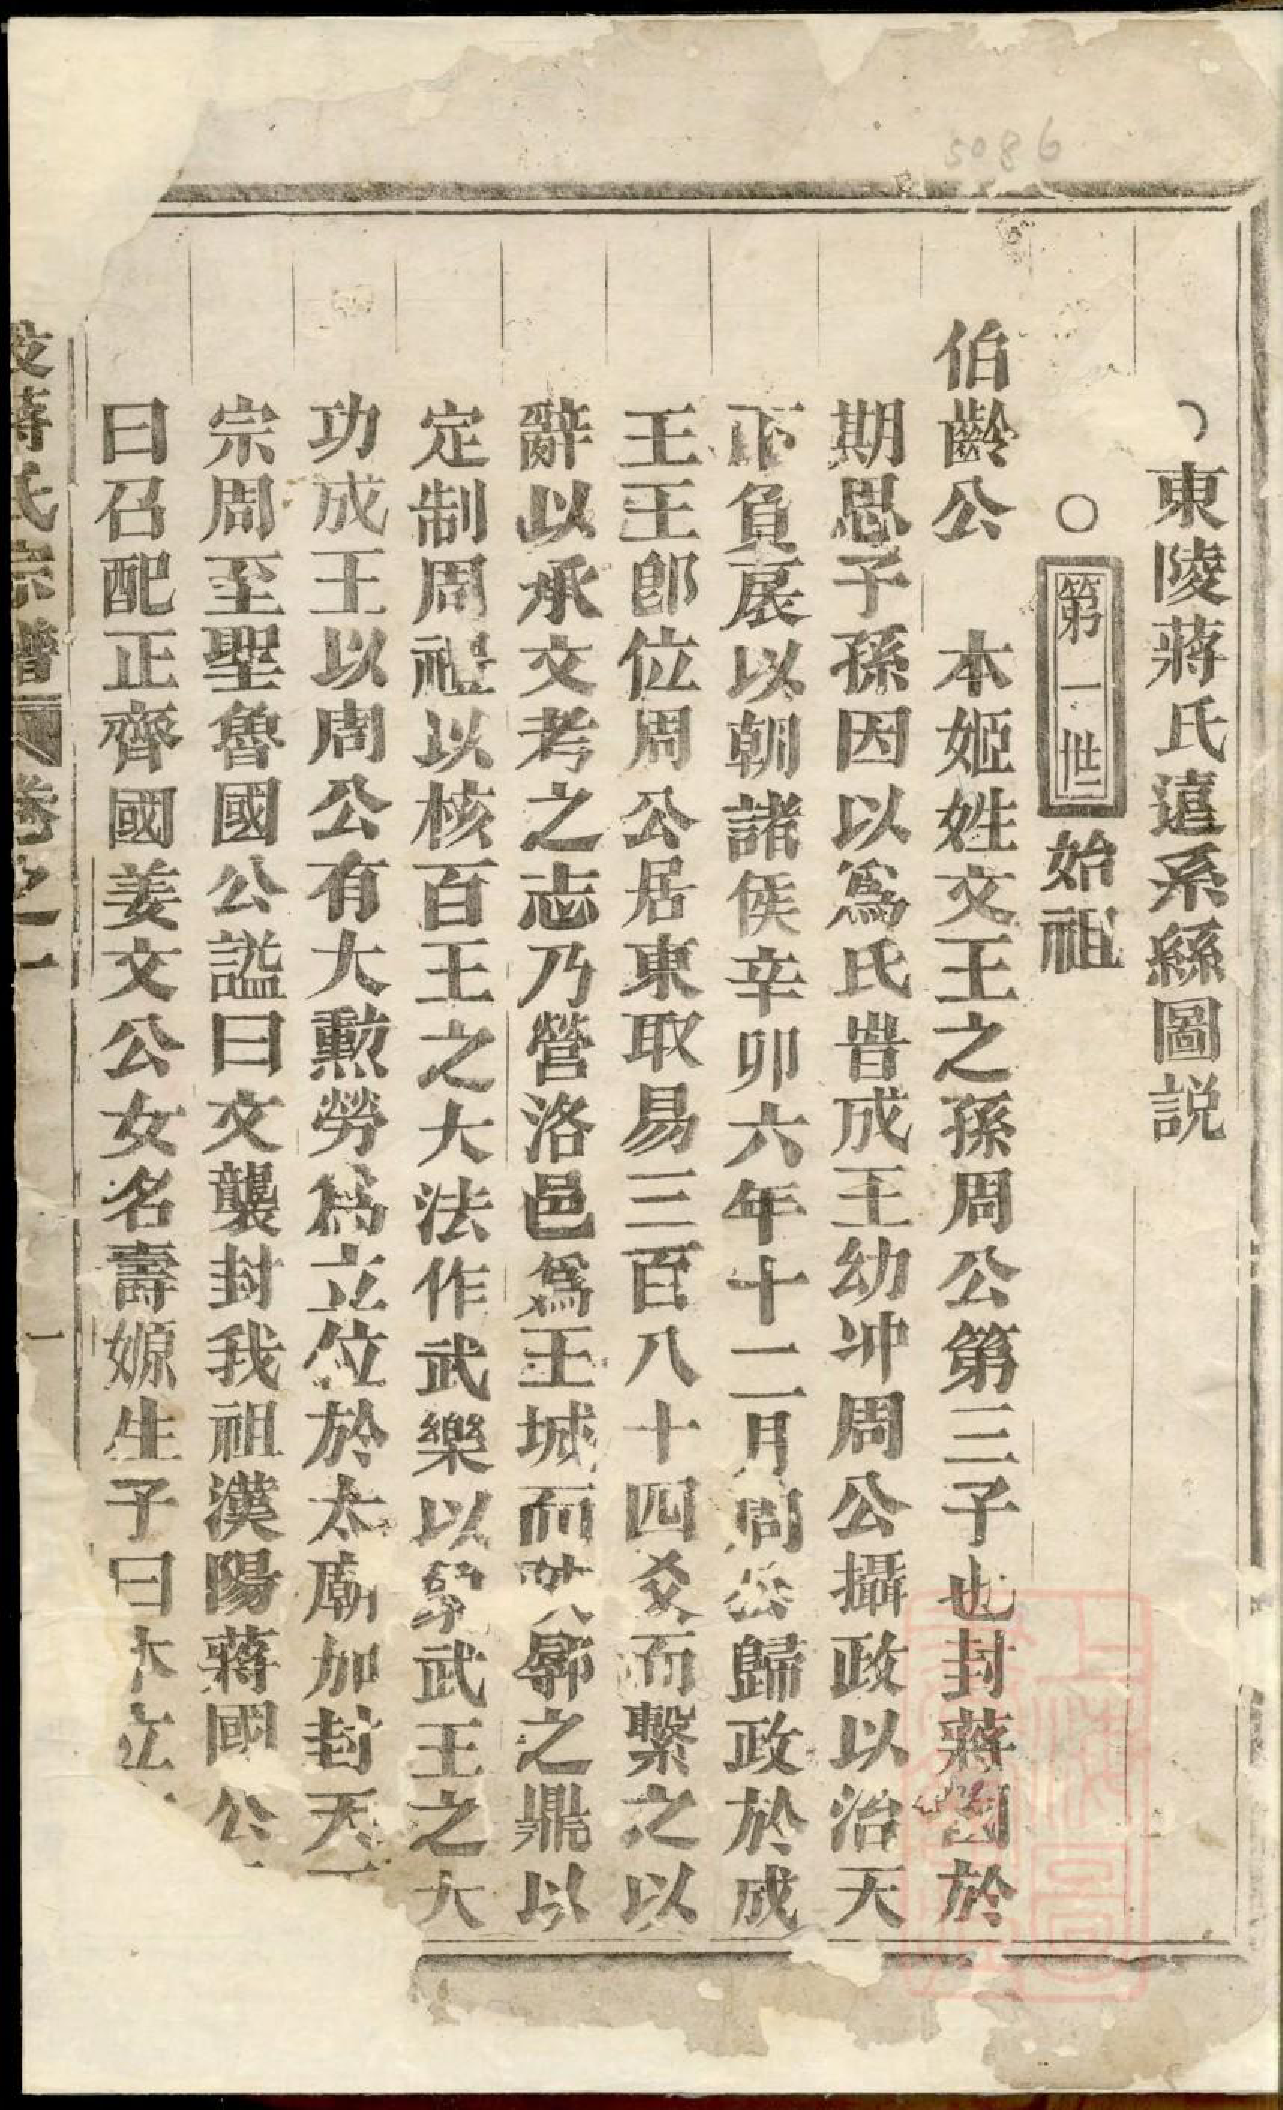 5086
○東陵蔣氏遠系綹圖説
○第一世 始祖
伯齡公 本姬姓文王之孫周公第三子也封蔣國於
期思子孫因以爲氏昔成王幼冲周公攝政以治天
下負扆以朝諸侯辛卯六年十二月周公歸政於成
王王卽位周公居東取易三百八十四爻而繫之以
辭以承文考之志乃營洛邑爲王城而郟鄏之鼎以
定制周禮以核百王之大法作武樂以象武王之大
功成王以周公有大勲勞爲立位於太廟加封天
宗周至聖魯國公謚曰文襲封我祖漢陽蔣國公
曰召配正齊國姜文公女名壽嫄生子曰
蔣氏宗譜 卷之一 一